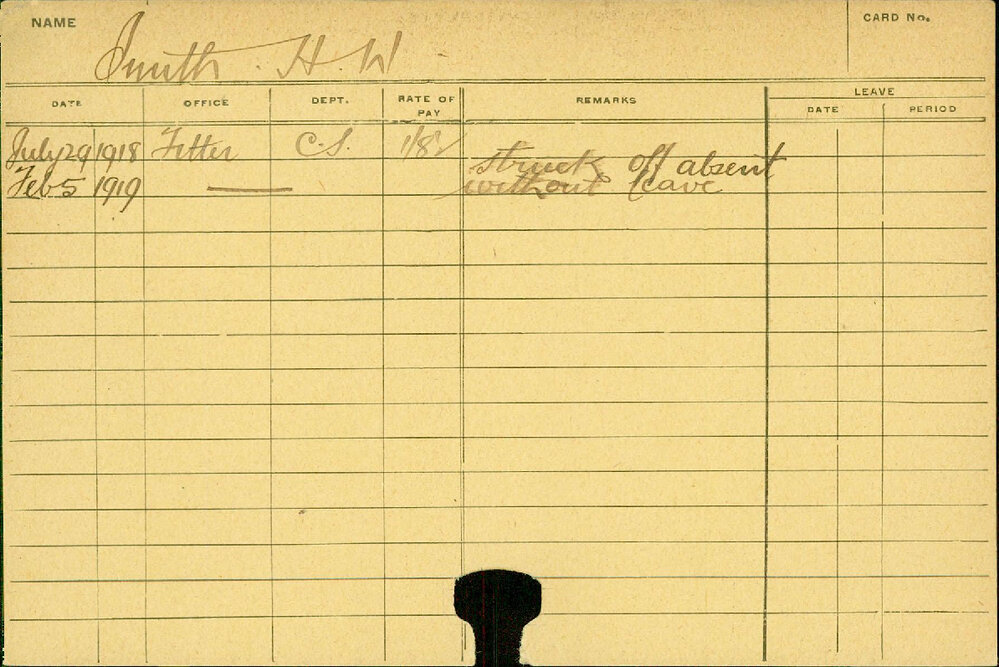 NAME
CARD No.
Smith. H. W
DATE OFFICE DEPT. RATE OF PAY REMARKS LEAVE
DATE PERIOD
July 29 1918 Fitter C.S. struck off absent
Feb 5 1919 — without leave